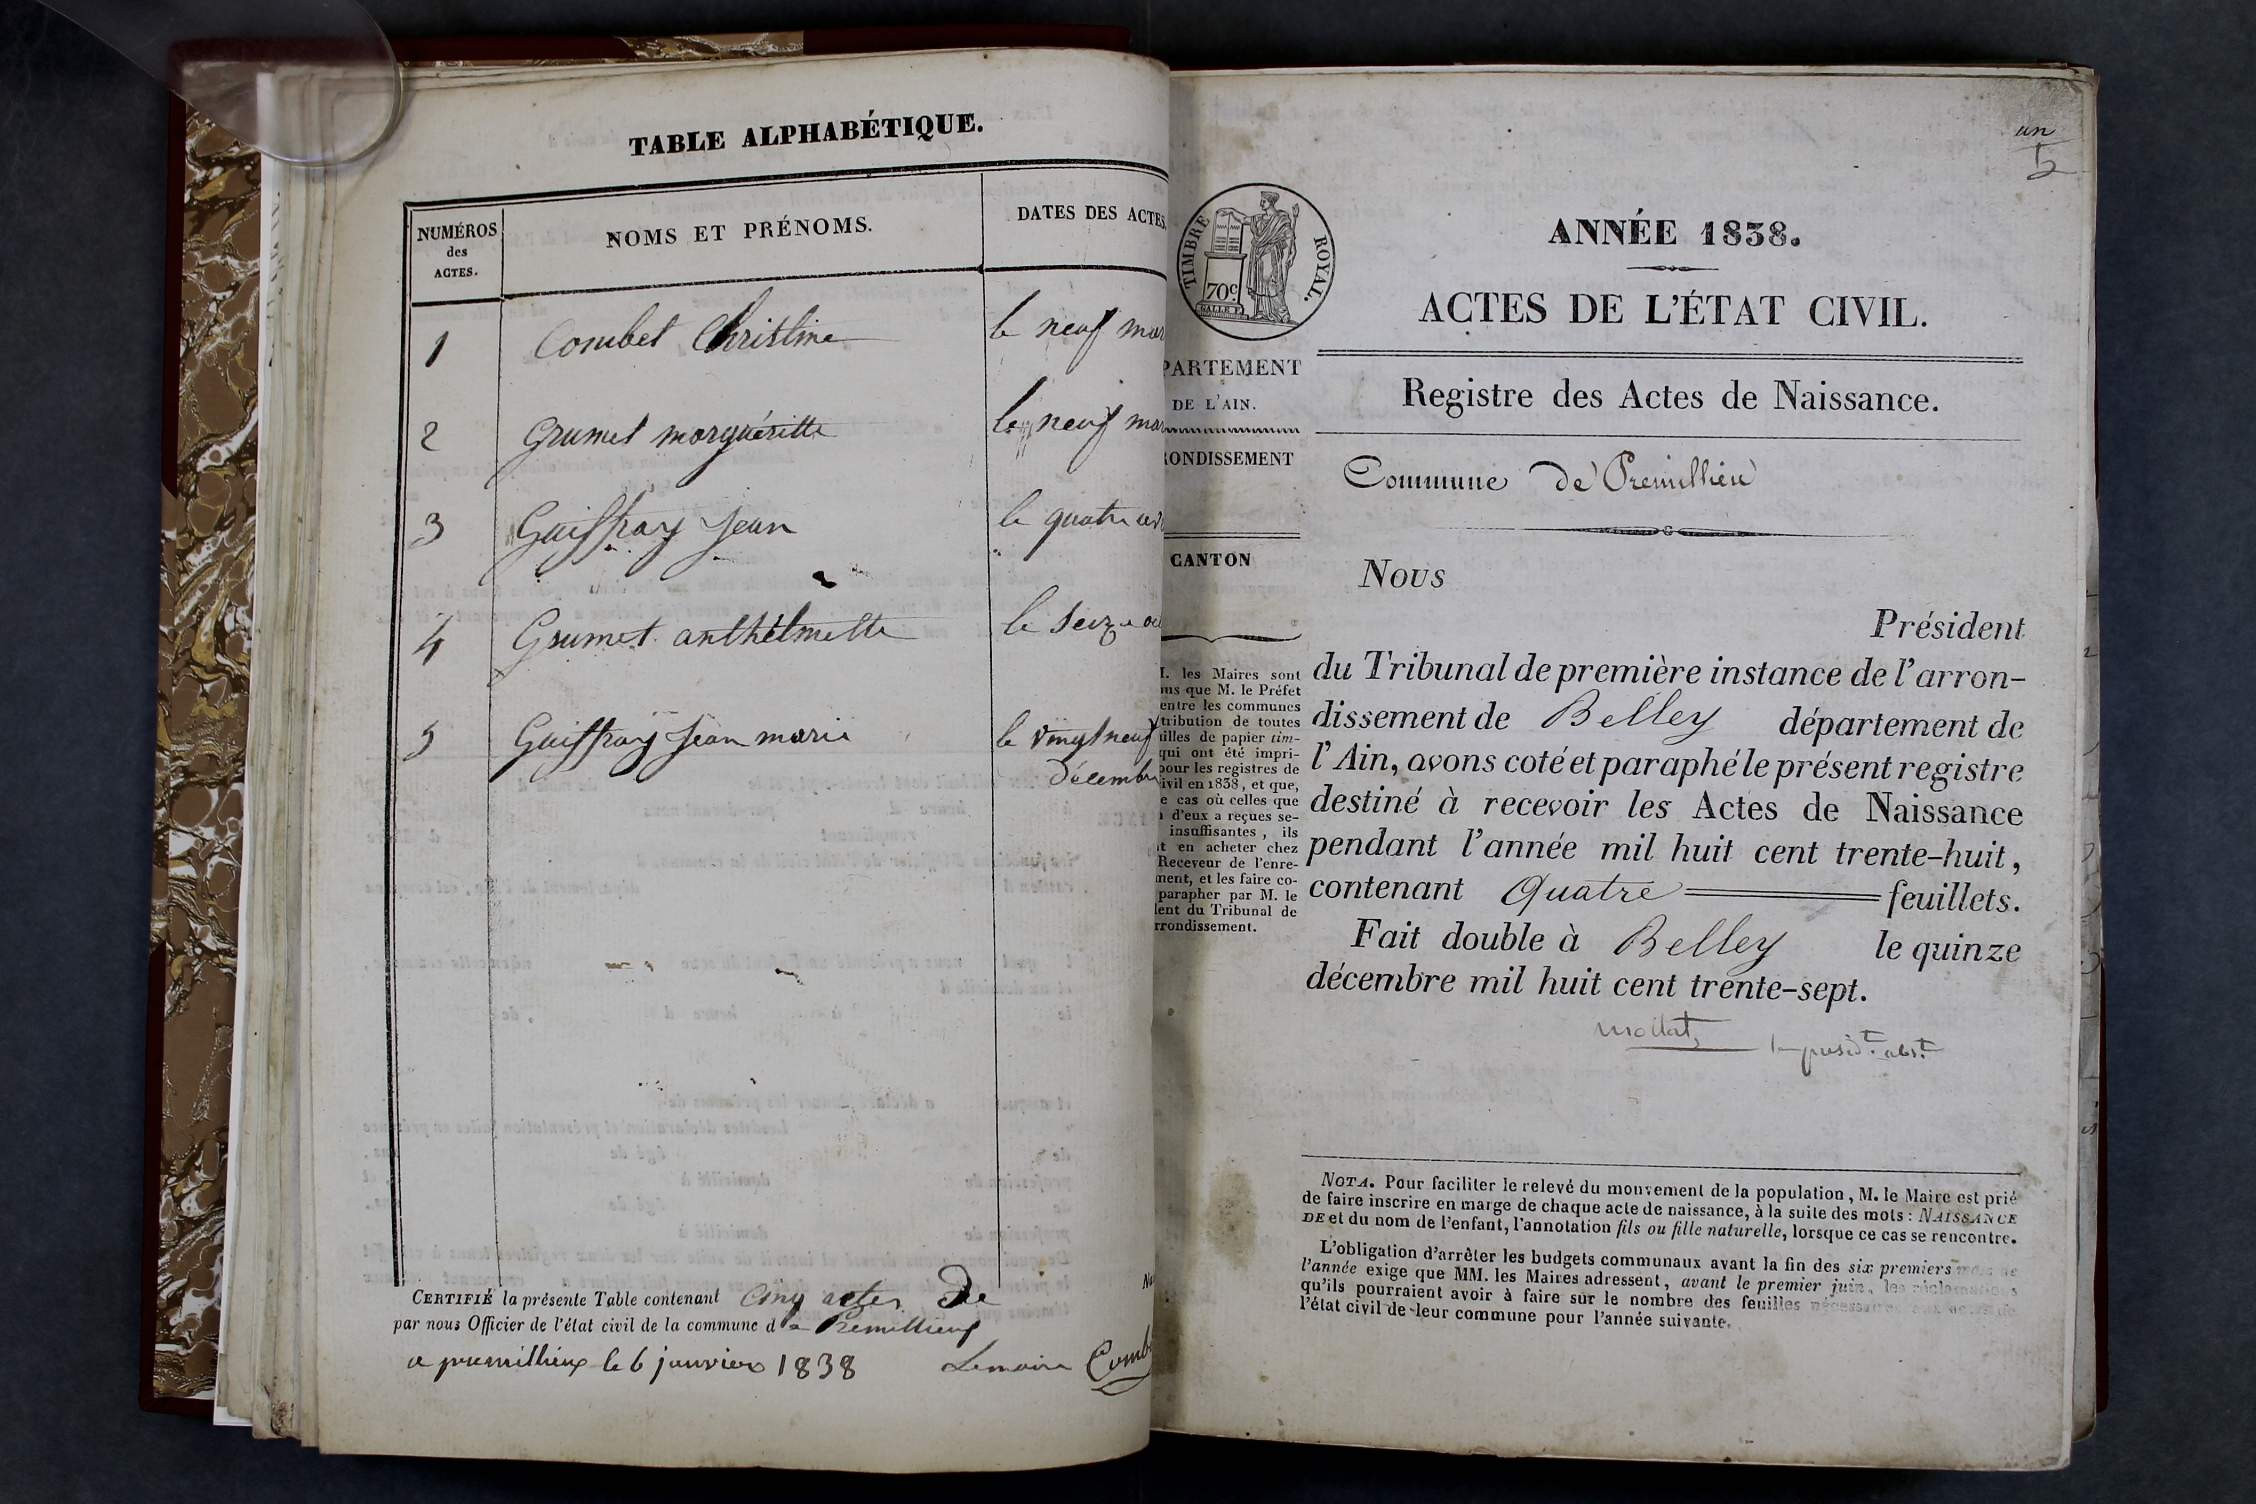 TABLE ALPHABÉTIQUE.
NUMÉROS
des
ACTES.
NOMS ET PRÉNOMS.
DATES DES ACTES.
1 Combet Christine le neuf mar
2 Grumet morguéritte le neuf mar
3 Guiffray Jean le quatre
4 Grumet anthélmette le seize
5 Guiffray Jean marie le vingt neuf
décembr
CERTIFIÉ la présente Table contenant Cinq actes De
par nous Officier de l'état civil de la commune de Premillieux
a premillieux le 6 janvier 1838 Lemaire Comb
un
5
TIMBRE ROYAL.
70c.
ANNÉE 1838.
ACTES DE L'ÉTAT CIVIL.
PARTEMENT
DE L'AIN.
RONDISSEMENT
CANTON
M. les Maires sont
ns que M. le Préfet
entre les communes
tribution de toutes
illes de papier tim-
qui ont été impri-
pour les registres de
ivil en 1838, et que,
e cas où celles que
d'eux a reçues se-
insuffisantes, ils
t en acheter chez
Receveur de l'enre-
ment, et les faire co-
parapher par M. le
dent du Tribunal de
rrondissement.
Registre des Actes de Naissance.
Commune de Premillieu
Nous
Président
du Tribunal de première instance de l'arron-
dissement de Belley département de
l'Ain, avons coté et paraphé le présent registre
destiné à recevoir les Actes de Naissance
pendant l'année mil huit cent trente-huit,
contenant Quatre feuillets.
Fait double à Belley le quinze
décembre mil huit cent trente-sept.
le présidt. abst.
NOTA. Pour faciliter le relevé du mouvement de la population, M. le Maire est prié
de faire inscrire en marge de chaque acte de naissance, à la suite des mots : NAISSANCE
DE et du nom de l'enfant, l'annotation fils ou fille naturelle, lorsque ce cas se rencontre.
L'obligation d'arrêter les budgets communaux avant la fin des six premiers mois de
l'année exige que MM. les Maires adressent, avant le premier juin, les réclamations
qu'ils pourraient avoir à faire sur le nombre des feuilles nécessaires
l'état civil de leur commune pour l'année suivante.